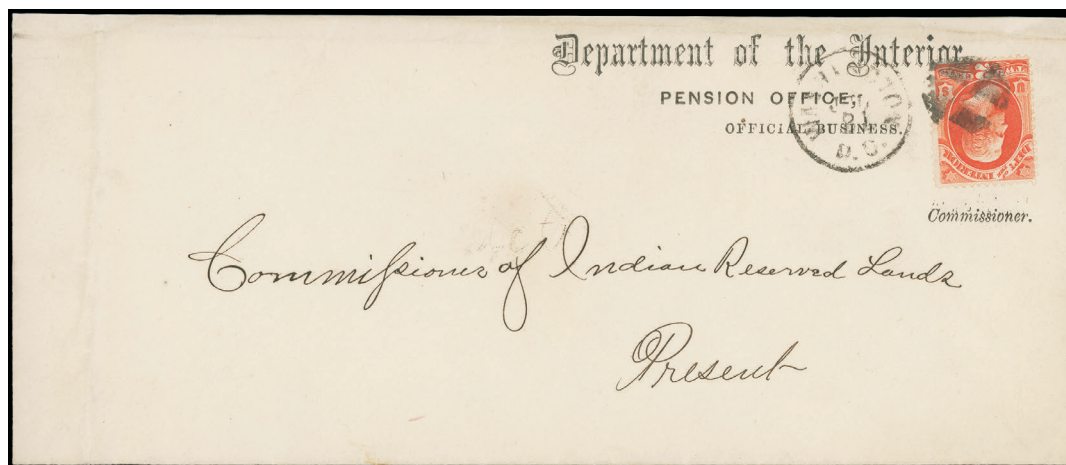 Department of the Interior,
PENSION OFFICE,
OFFICIAL BUSINESS.
WASHINGTON
21
D.C.
DEPT. OF THE INTERIOR
Commissioner.
Commissioner of Indian Reserved Lands
Present